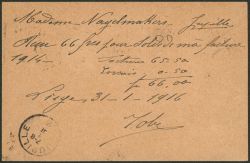 Madame Nagelmakers. Jupille
Reçu 66 frcs pour solde de ma facture
1914 - facture 65.50
0.50
fr 66,00
Liege 31-1-1916